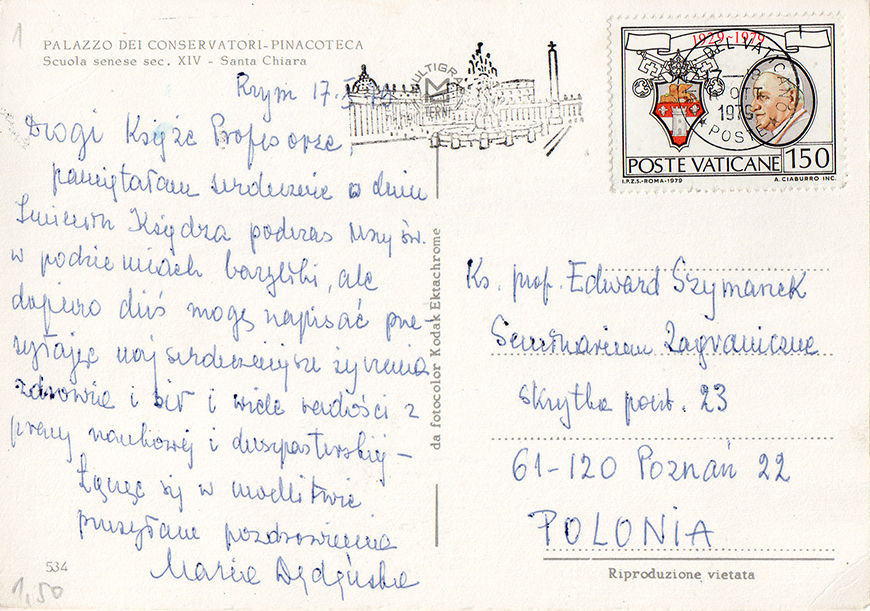 1
PALAZZO DEI CONSERVATORI-PINACOTECA
Scuola senese sec. XIV - Santa Chiara
Rzym 17.
Drogi Księże Profesorze,
pamiętałam serdecznie w dniu
Imienin Księdza podczas Mszy św.
w podziemiach bazyliki, ale
dopiero dziś mogę napisać prze-
syłając najserdeczniejsze życzenia
zdrowia i sił i wiele radości z
pracy naukowej i duszpasterskiej –
Łącząc się w modlitwie
przesyłam pozdrowienia
Maria
534
1,50
da fotocolor Kodak Ektachrome
1929-1979
OTT
1979
POSTE
POSTE VATICANE 150
I.P.Z.S.-ROMA-1979 A. CIABURRO INC.
Ks. prof. Edward Szymanek
Seminarium Zagraniczne
skrytka poczt. 23
61-120 Poznań 22
POLONIA
Riproduzione vietata